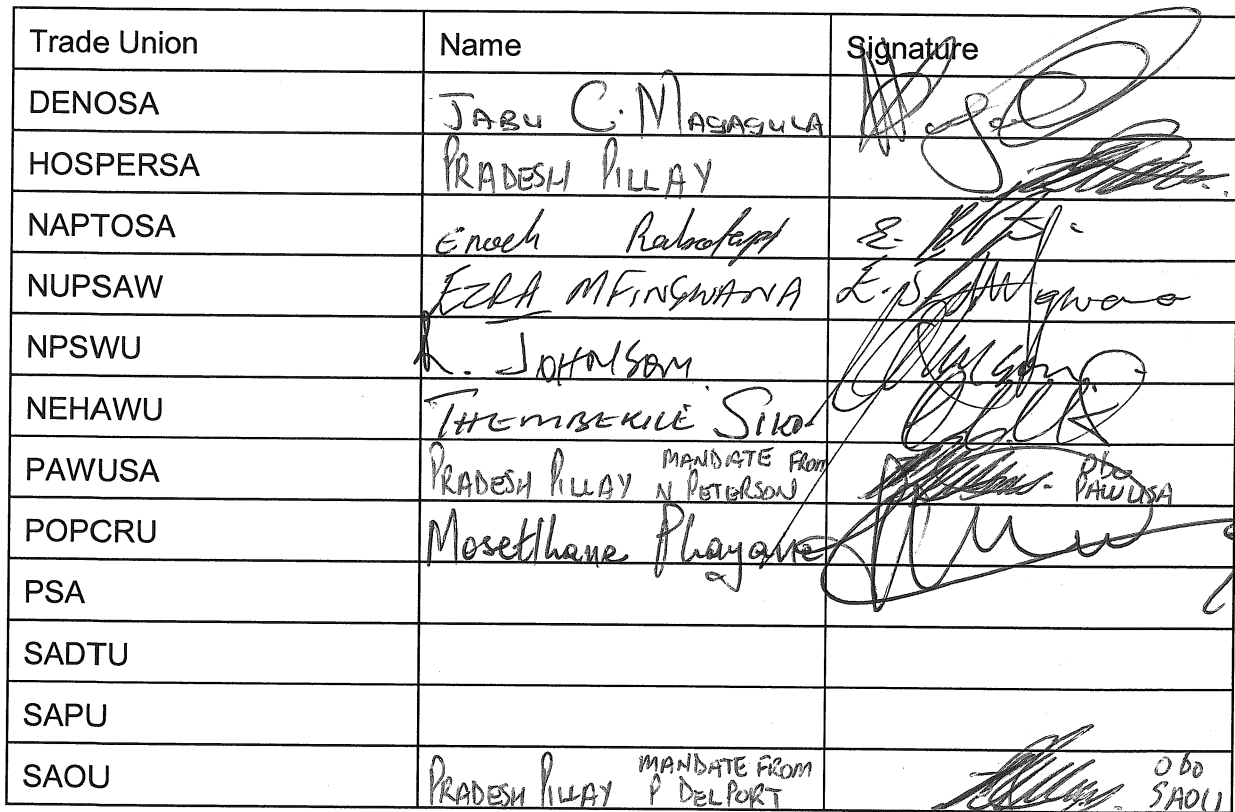 Trade Union Name Signature
DENOSA JABU C. MAGAGULA
HOSPERSA PRADESH PILLAY
NAPTOSA Enoch
NUPSAW EZRA MFINGWANA
NPSWU R. JOHNSON
NEHAWU THEMBEKILE
PAWUSA PRADESH PILLAY MANDATE FROM N PETERSON obo PAWUSA
POPCRU Mosetlhane Phayane
PSA
SADTU
SAPU
SAOU PRADESH PILLAY MANDATE FROM P DELPORT obo SAOU